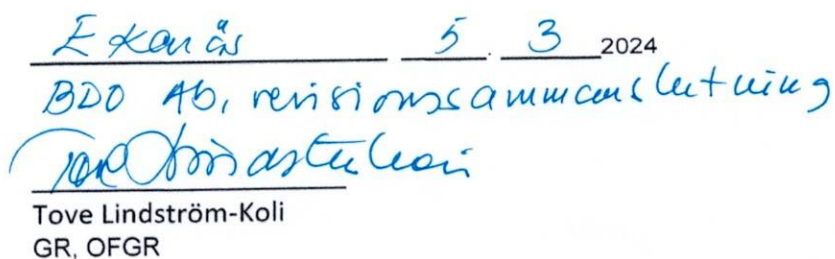 Ekenäs 5. 3 2024
BDO Ab, revisionssammanslutning
Tove Lindström-Koli
Tove Lindström-Koli
GR, OFGR